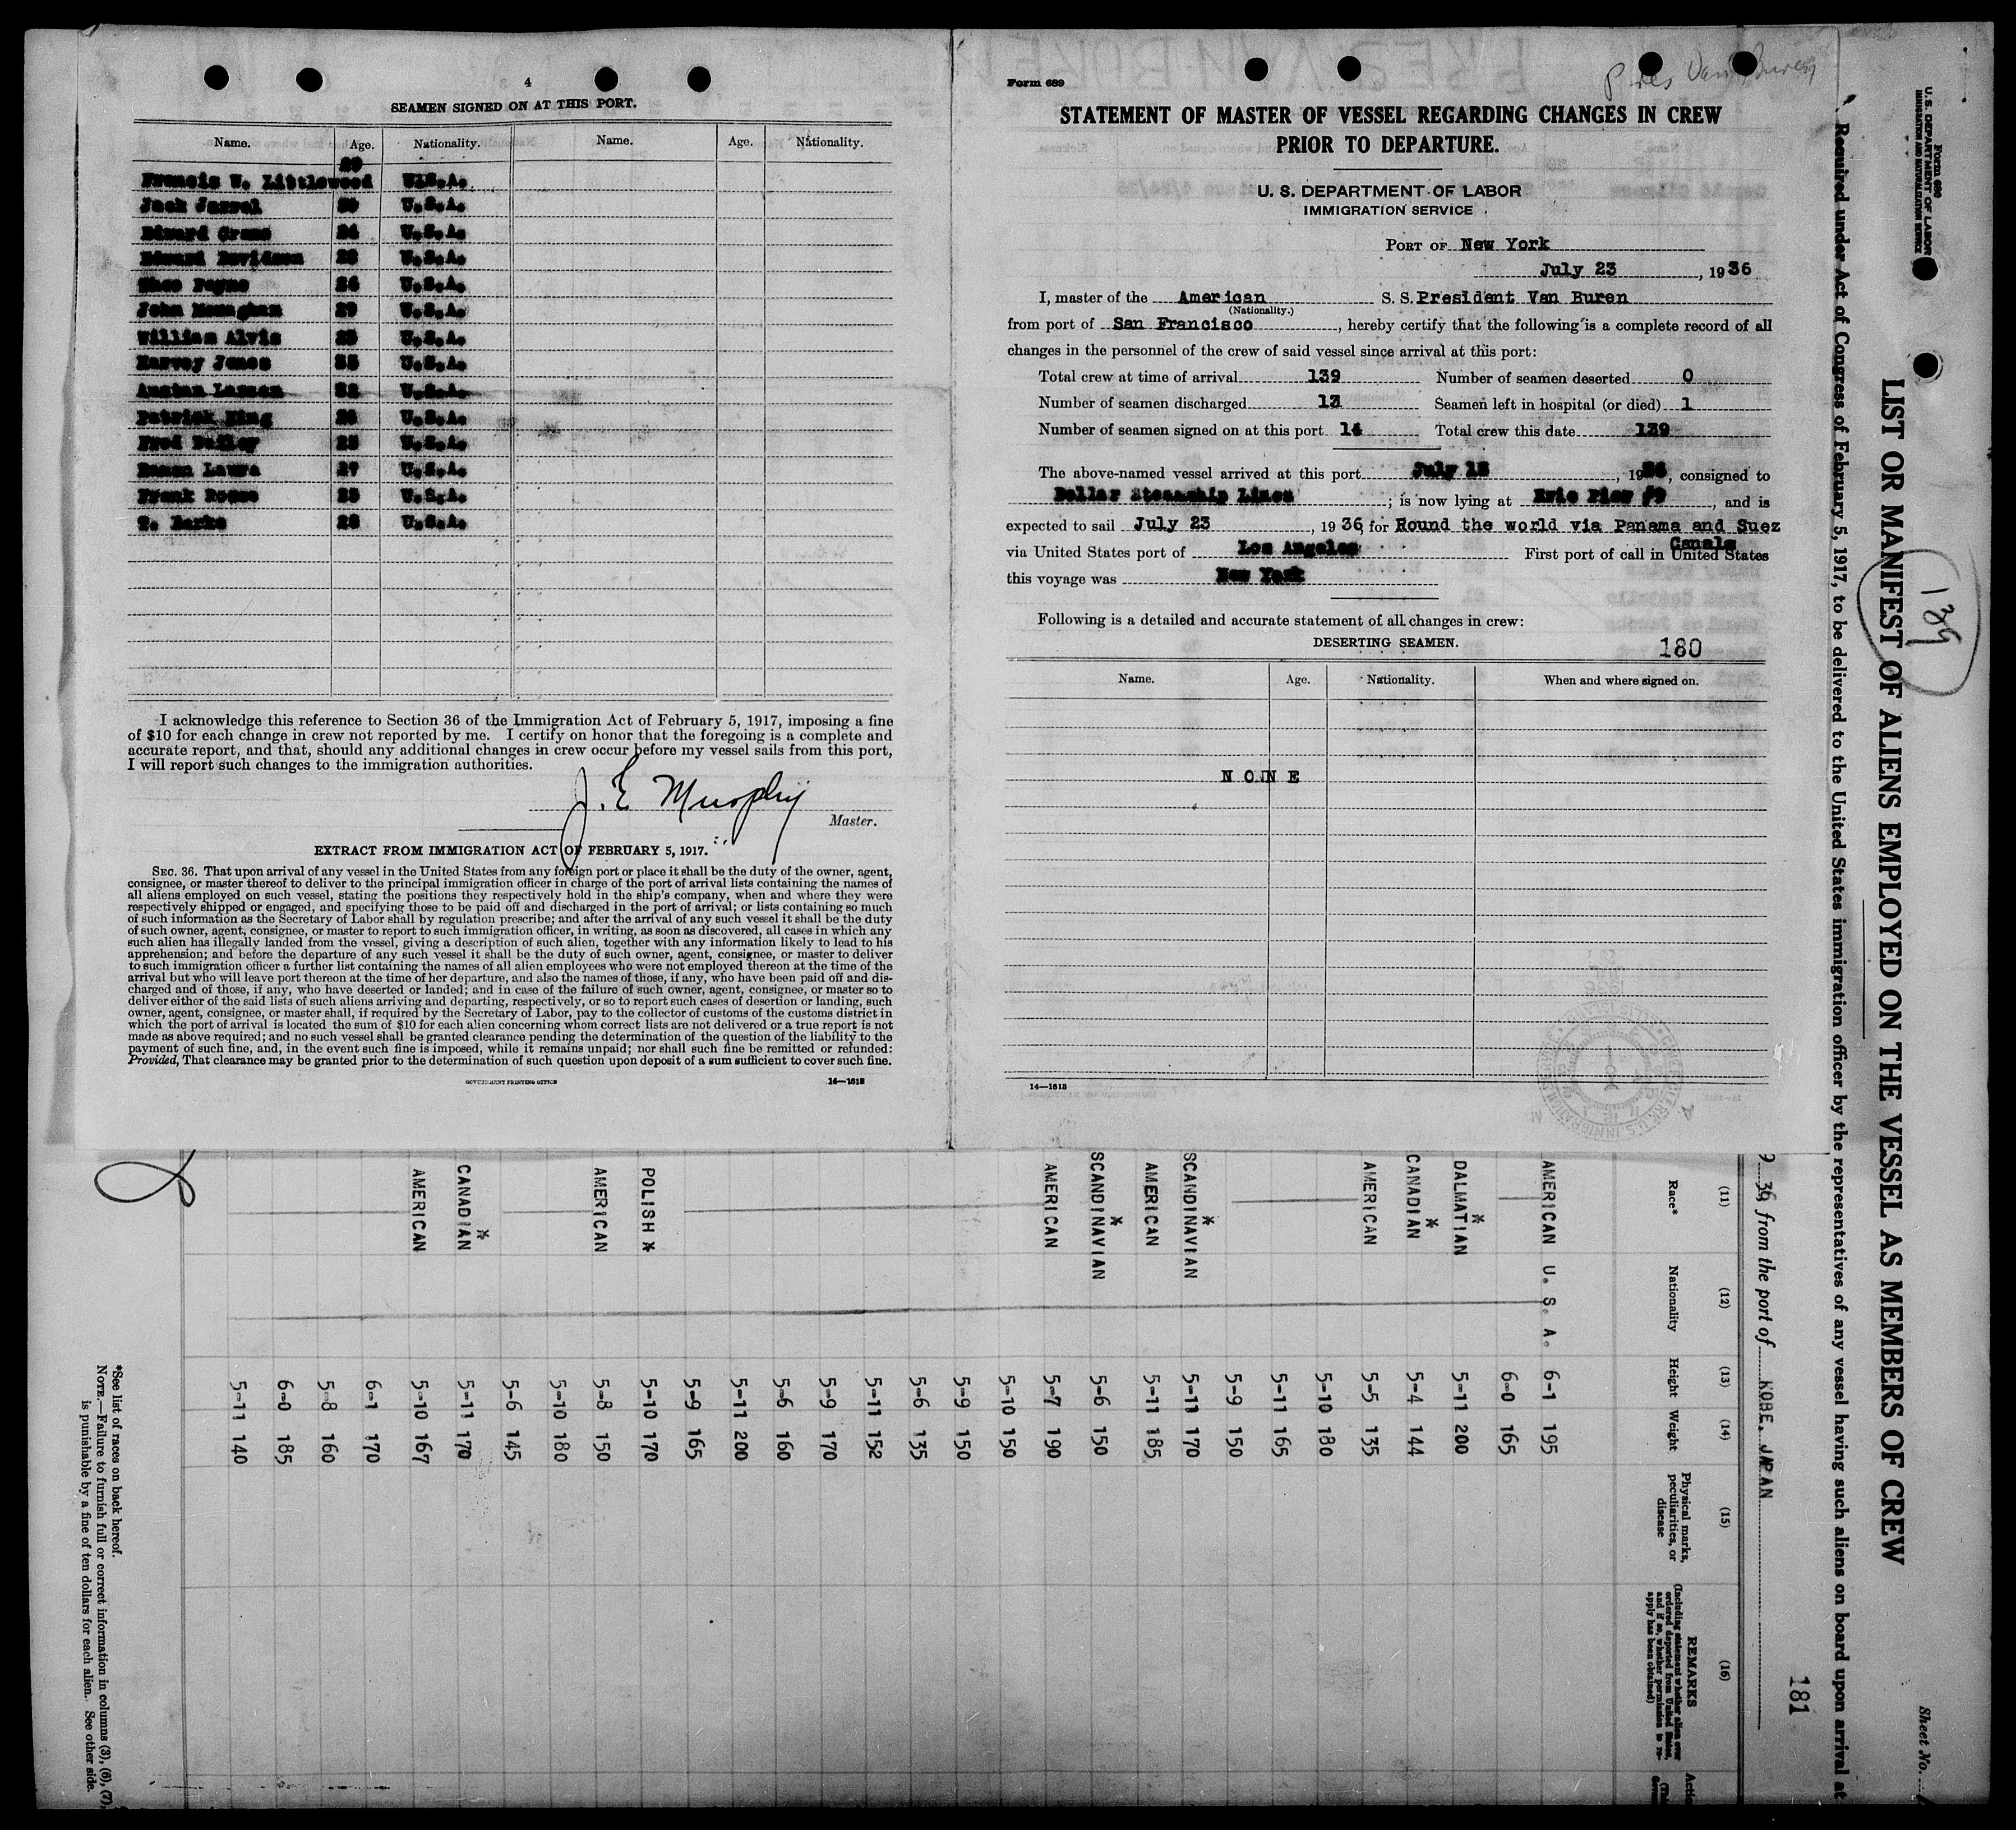 4
SEAMEN SIGNED ON AT THIS PORT.
Name. Age. Nationality. Name. Age. Nationality.
Francis W. Littlewood 29 U.S.A.
Jack U.S.A.
Edward 24 U.S.A.
Edward Davidson U.S.A.
Theo Payne U.S.A.
John Monaghan 29 U.S.A.
William Alvis U.S.A.
Harvey Jones 35 U.S.A.
U.S.A.
Patrick King U.S.A.
Fred U.S.A.
27 U.S.A.
Frank U.S.A.
U.S.A.
I acknowledge this reference to Section 36 of the Immigration Act of February 5, 1917, imposing a fine
of $10 for each change in crew not reported by me. I certify on honor that the foregoing is a complete and
accurate report, and that, should any additional changes in crew occur before my vessel sails from this port,
I will report such changes to the immigration authorities.
J. E Murphy
Master.
EXTRACT FROM IMMIGRATION ACT OF FEBRUARY 5, 1917.
SEC. 36. That upon arrival of any vessel in the United States from any foreign port or place it shall be the duty of the owner, agent,
consignee, or master thereof to deliver to the principal immigration officer in charge of the port of arrival lists containing the names of
all aliens employed on such vessel, stating the positions they respectively hold in the ship's company, when and where they were
respectively shipped or engaged, and specifying those to be paid off and discharged in the port of arrival; or lists containing so much
of such information as the Secretary of Labor shall by regulation prescribe; and after the arrival of any such vessel it shall be the duty
of such owner, agent, consignee, or master to report to such immigration officer, in writing, as soon as discovered, all cases in which any
such alien has illegally landed from the vessel, giving a description of such alien, together with any information likely to lead to his
apprehension; and before the departure of any such vessel it shall be the duty of such owner, agent, consignee, or master to deliver
to such immigration officer a further list containing the names of all alien employees who were not employed thereon at the time of the
arrival but who will leave port thereon at the time of her departure, and also the names of those, if any, who have been paid off and dis-
charged and of those, if any, who have deserted or landed; and in case of the failure of such owner, agent, consignee, or master so to
deliver either of the said lists of such aliens arriving and departing, respectively, or so to report such cases of desertion or landing, such
owner, agent, consignee, or master shall, if required by the Secretary of Labor, pay to the collector of customs of the customs district in
which the port of arrival is located the sum of $10 for each alien concerning whom correct lists are not delivered or a true report is not
made as above required; and no such vessel shall be granted clearance pending the determination of the question of the liability to the
payment of such fine, and, in the event such fine is imposed, while it remains unpaid; nor shall such fine be remitted or refunded:
Provided, That clearance may be granted prior to the determination of such question upon deposit of a sum sufficient to cover such fine.
GOVERNMENT PRINTING OFFICE 14—1613
Form 689
Pres Van Buren
STATEMENT OF MASTER OF VESSEL REGARDING CHANGES IN CREW
PRIOR TO DEPARTURE.
U. S. DEPARTMENT OF LABOR
IMMIGRATION SERVICE
PORT OF New York
July 23, 1936
I, master of the American S. S. President Van Buren
(Nationality.)
from port of San Francisco, hereby certify that the following is a complete record of all
changes in the personnel of the crew of said vessel since arrival at this port:
Total crew at time of arrival 139 Number of seamen deserted 0
Number of seamen discharged 13 Seamen left in hospital (or died) 1
Number of seamen signed on at this port 14 Total crew this date 139
The above-named vessel arrived at this port July, 1936, consigned to
Dollar Steamship Lines; is now lying at Erie Pier #9, and is
expected to sail July 23, 1936, for Round the world via Panama and Suez
Canals
via United States port of Los Angeles First port of call in United States
this voyage was New York
Following is a detailed and accurate statement of all changes in crew:
DESERTING SEAMEN. 180
Name. Age. Nationality. When and where signed on.
NONE
14—1613
Form 689
U. S. DEPARTMENT OF LABOR
IMMIGRATION AND NATURALIZATION SERVICE
Sheet No.
139
LIST OR MANIFEST OF ALIENS EMPLOYED ON THE VESSEL AS MEMBERS OF CREW
Required under Act of Congress of February 5, 1917, to be delivered to the United States immigration officer by the representatives of any vessel having such aliens on board upon arrival at
181
36 from the port of KOBE, JAPAN
(11) (12) (13) (14) (15) (16)
Race* Nationality Height Weight Physical marks, peculiarities, or disease REMARKS
(Including statement whether alien ever ordered deported from United States, and if so, whether permission to re-apply has been obtained)
AMERICAN U. S. A. 6-1 195
6-0 165
DALMATIAN * 5-11 200
CANADIAN * 5-4 144
AMERICAN 5-5 135
5-10 180
5-11 165
5-9 150
SCANDINAVIAN * 5-11 170
AMERICAN 5-11 185
SCANDINAVIAN * 5-6 150
AMERICAN 5-7 190
5-10 150
5-9 150
5-6 135
5-11 152
5-9 170
5-6 160
5-11 200
5-9 165
POLISH * 5-10 170
AMERICAN 5-8 150
5-10 180
5-6 145
CANADIAN * 5-11 170
AMERICAN 5-10 167
6-1 170
5-8 160
6-0 185
5-11 140
*See list of races on back hereof.
NOTE.—Failure to furnish full or correct information in columns (3), (6), (7),
is punishable by a fine of ten dollars for each alien. See other side.